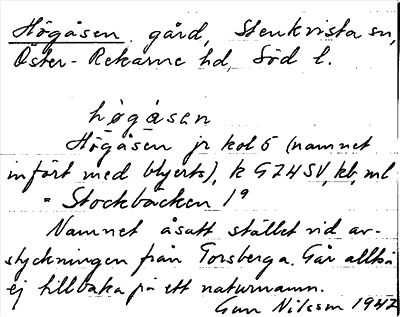 Högåsen gård, Stenkvista sn,
Öster-Rekarne hd, Söd l.
högåsen
Högåsen jr kol 5 (namnet
infört med blyerts), k GZHSV, kb, ml
= Stockbacken 1⁹
Namnet åsatt stället vid av-
styckningen från Torsberga. Går alltså
ej tillbaka på ett naturnamn.
Gun Nilsson 1947